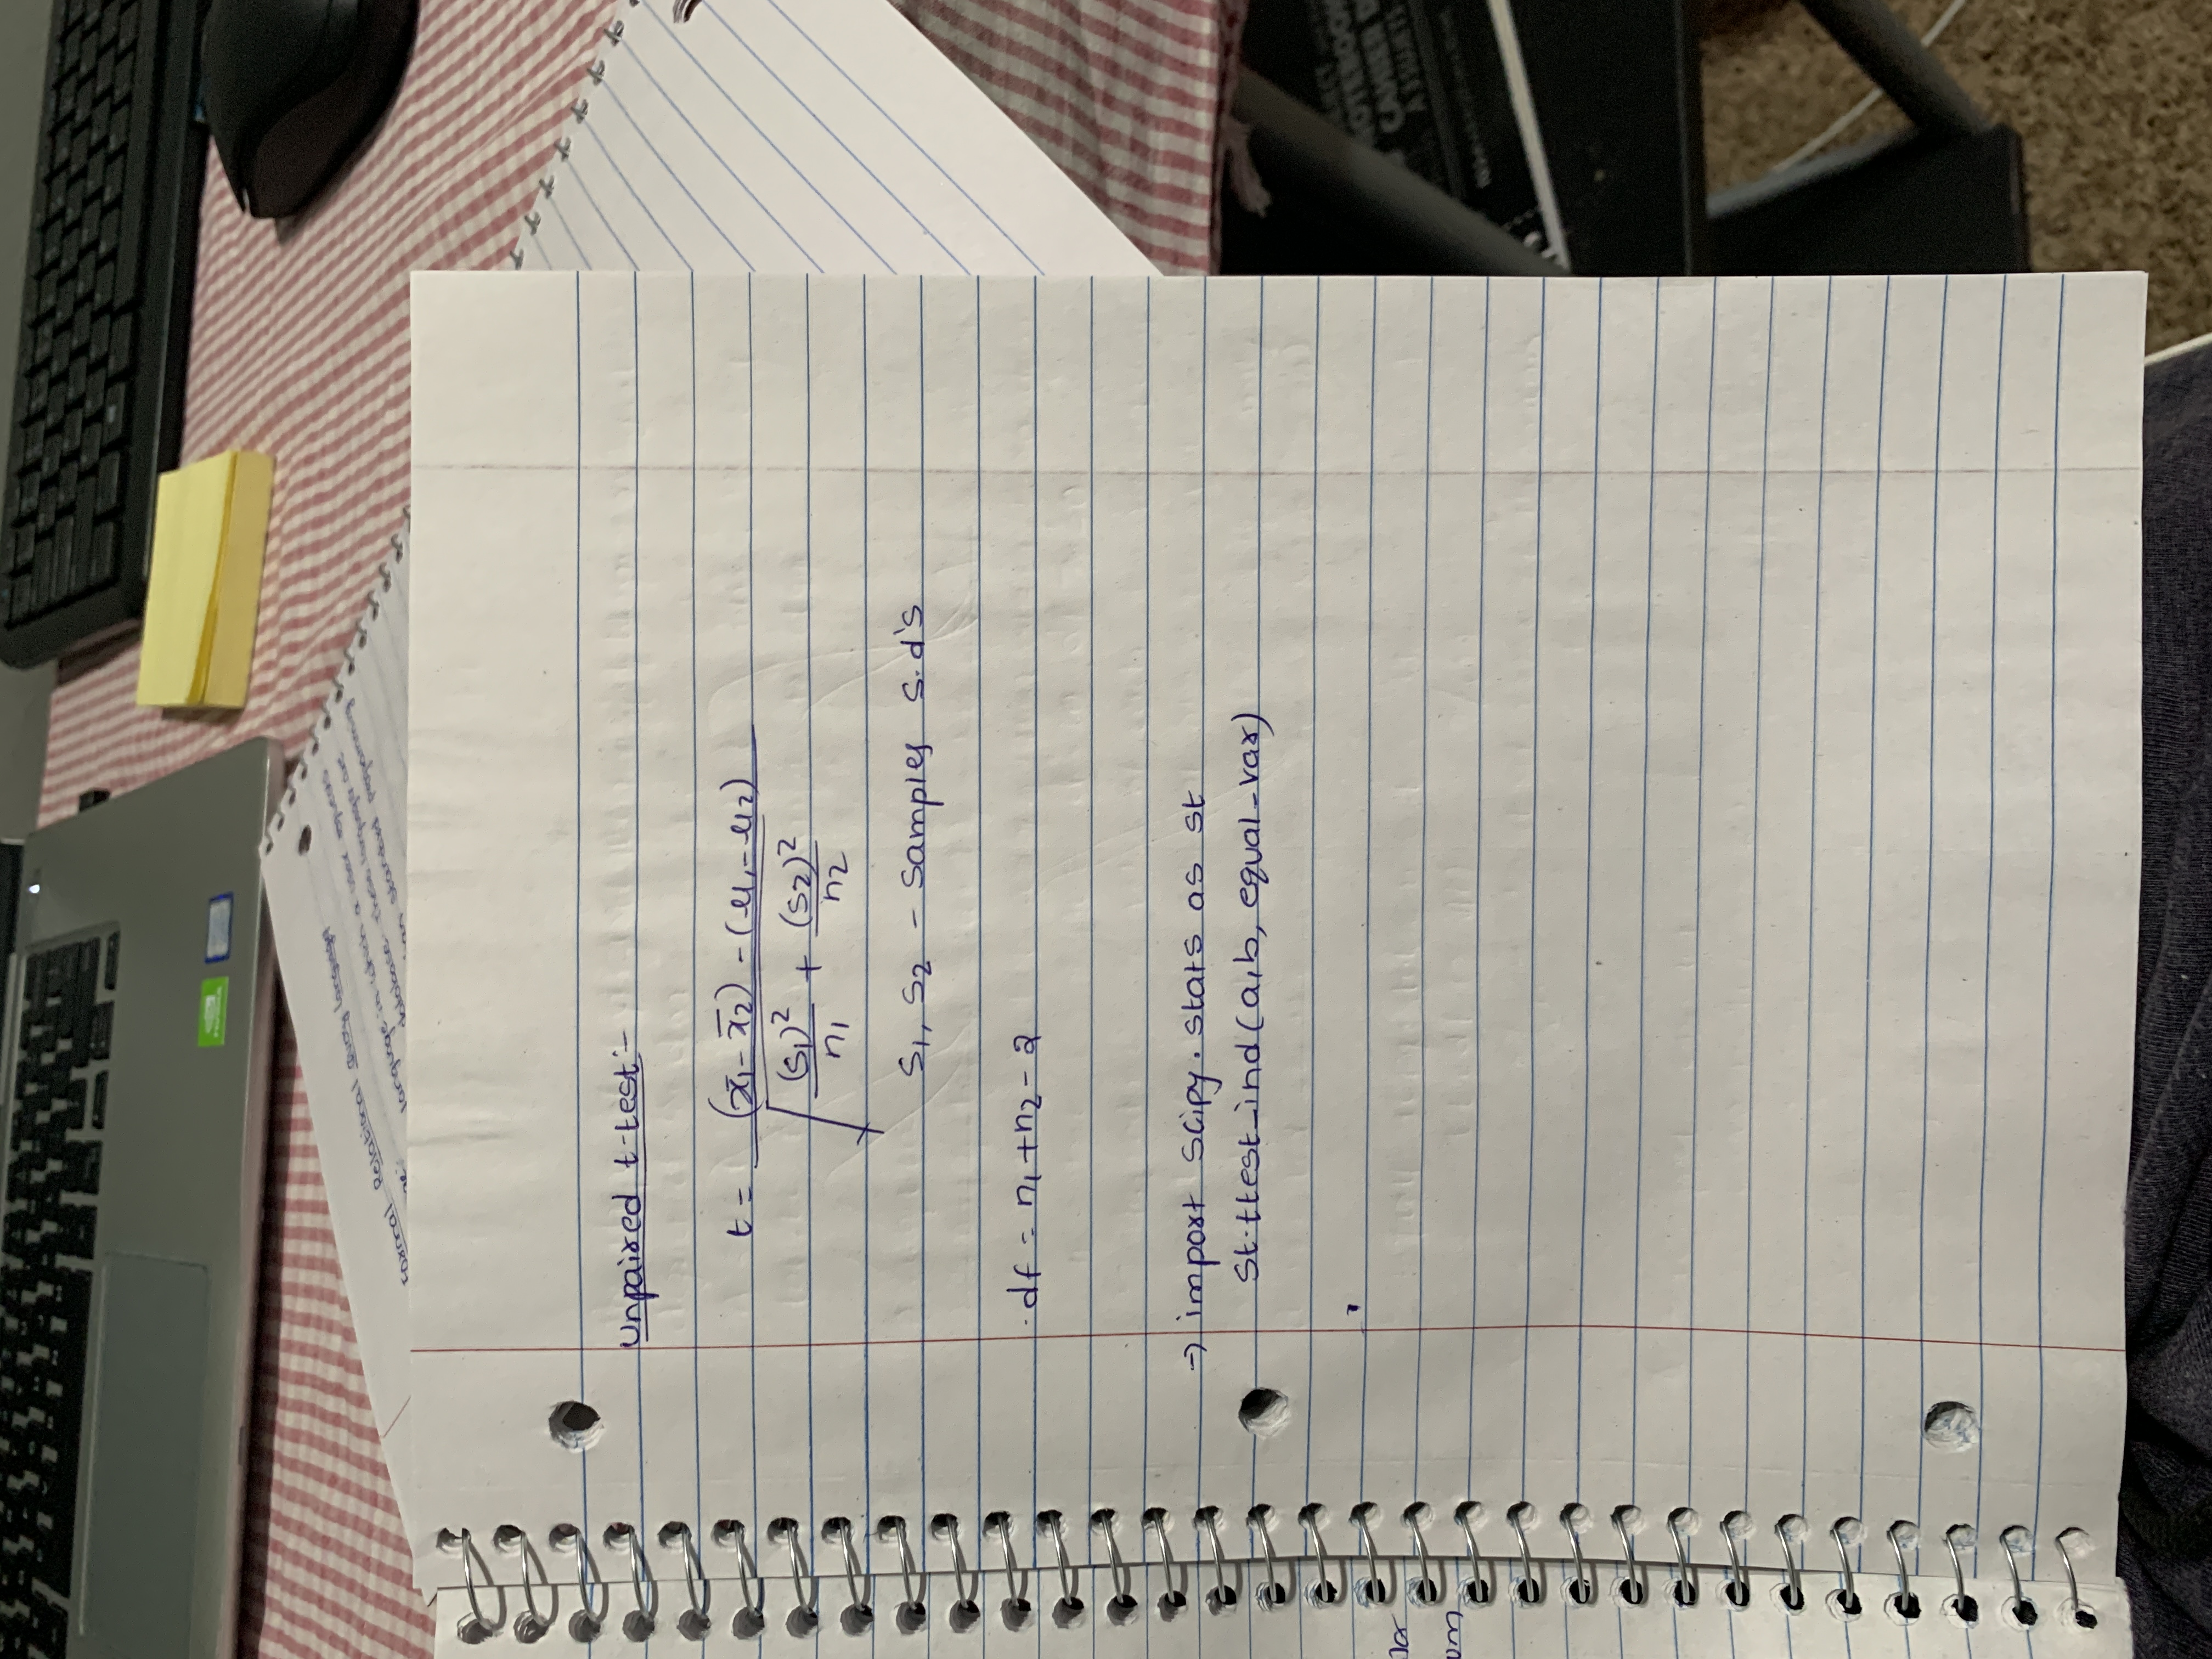 Formal Relational Query Language
language in which a user requests
database. These languages are
standard programming
Unpaired t-test:-
t = (x̄1 - x̄2) - (μ1 - μ2)
√ (S1)² / n1 + (S2)² / n2
S1, S2 - Samples S.d's
df = n1 + n2 - 2
→ import scipy.stats as st
st.ttest_ind(a,b, equal_var)
NOTEBOOK
CAHIER D
ASSORTI